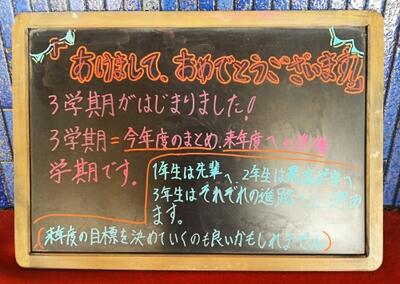 あけまして、おめでとうございます!!
3学期がはじまりました!
3学期=今年度のまとめ、来年度への準備
学期です。
1年生は先輩へ、2年生は最高学年へ、
3年生はそれぞれの進路へ
ます。
(来年度の目標を決めていくのも良いかもしれません)